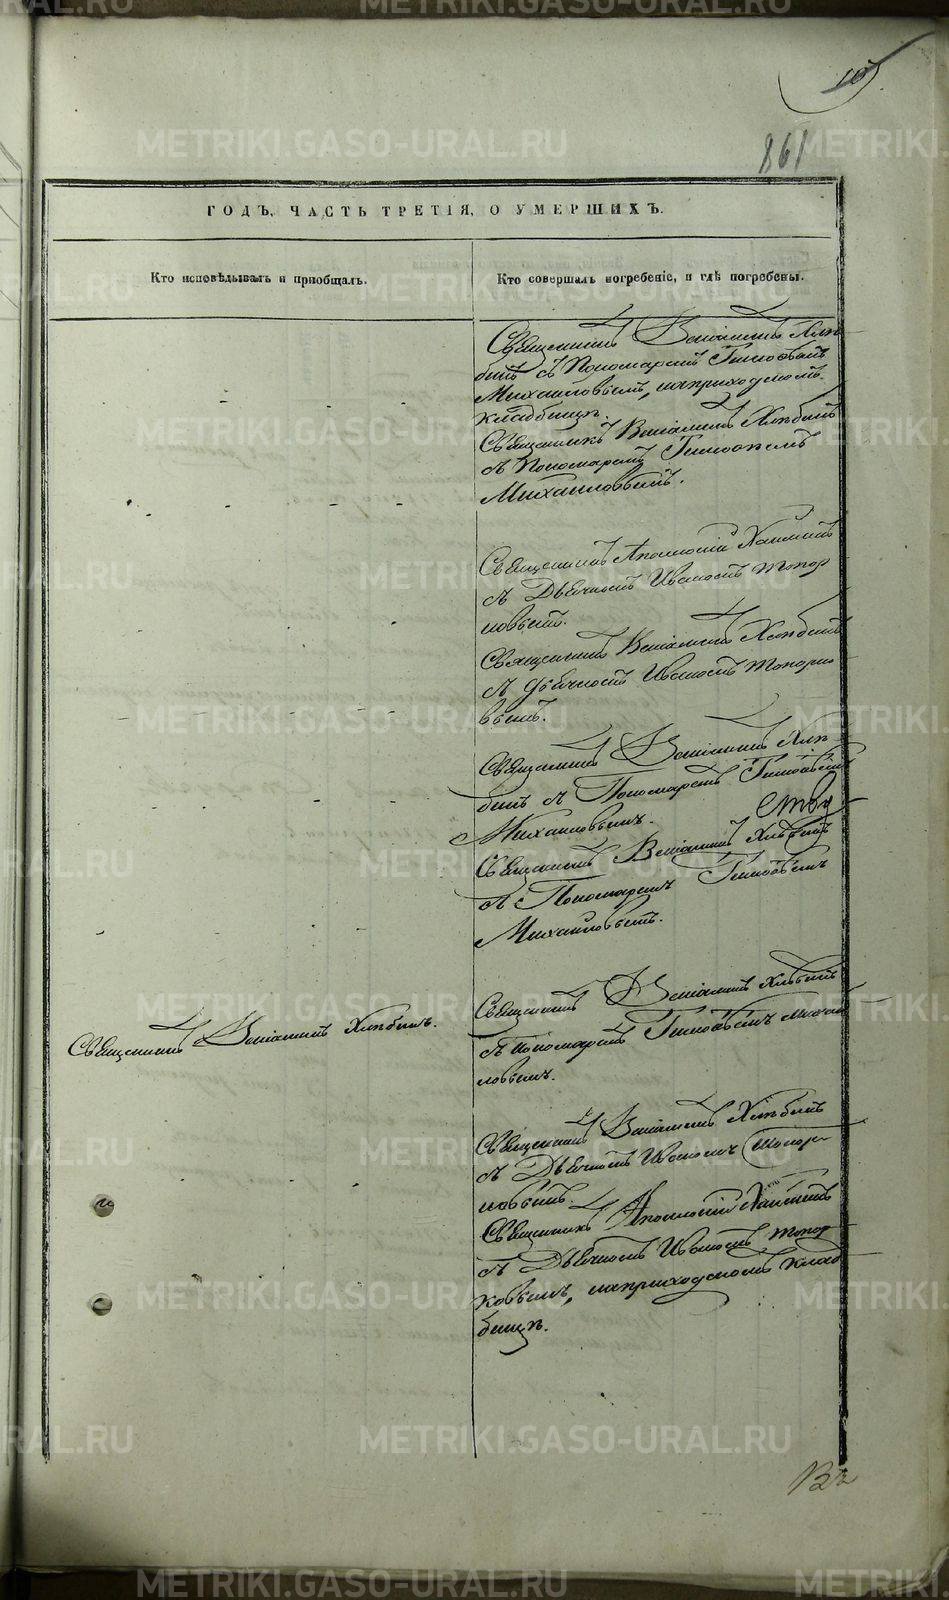 107
861
ГОДЪ, ЧАСТЬ ТРЕТІЯ, О УМЕРШИХЪ.
Кто исповѣдывалъ и пріобщалъ.
Кто совершалъ погребеніе, и гдѣ погребены.
Священникъ Веніаминъ Хлѣ
бинъ съ Пономаремъ Тимоѳеемъ
Михайловымъ, наприходскомъ
кладбищѣ.
Священникъ Веніаминъ Хлѣбинъ
съ Пономаремъ Тимоѳеемъ
Михайловымъ.
Священникъ
съ Дьячкомъ Иваномъ Топор
ковымъ.
Священникъ Веніаминъ Хлѣбинъ
съ Дьячкомъ Иваномъ Топорко
вымъ.
Священникъ Веніаминъ Хлѣ
бинъ съ Пономаремъ Тимоѳеемъ
Михайловымъ.
ству
Священникъ Веніаминъ Хлѣбинъ
съ Пономаремъ Тимоѳеемъ
Михайловымъ.
Священникъ Веніаминъ Хлѣбинъ.
Священникъ Веніаминъ Хлѣбинъ
съ Пономаремъ Тимоѳеемъ Михай
ловымъ.
Священникъ Веніаминъ Хлѣбинъ
съ Дьячкомъ Иваномъ Топор
ковымъ.
Священникъ
съ Дьячкомъ Иваномъ Топор
ковымъ, наприходскомъ клад
бищѣ.
METRIKI.GASO-URAL.RU